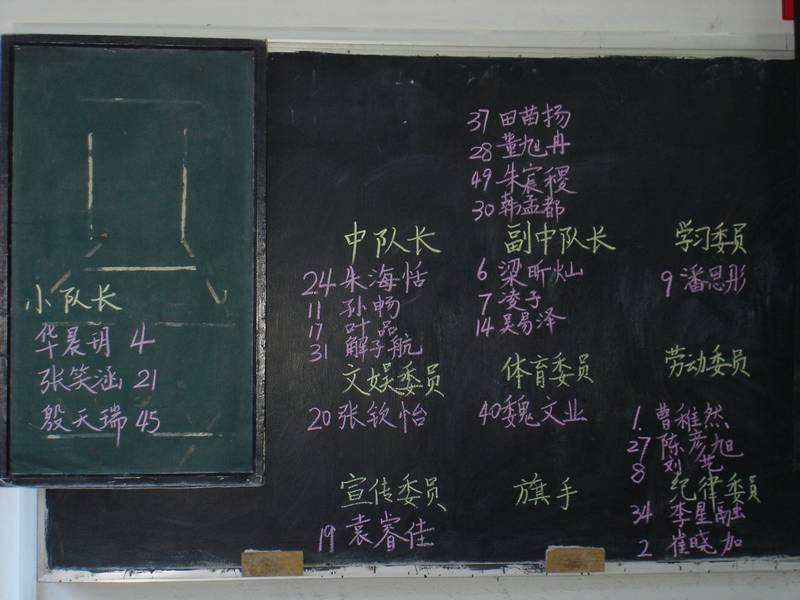 小队长
华晨玥 4
张笑涵 21
殷天瑞 45
37 田苗扬
28 董旭冉
49 朱宸稷
30 韩孟都
中队长
24 朱海恬
11 孙畅
17 叶品
31 解子航
副中队长
6 梁昕灿
7 凌子
14 吴易泽
学习委员
9 潘思彤
文娱委员
20 张钦怡
体育委员
40 魏文业
劳动委员
1. 曹稚然
27 陈彦旭
8 刘艺
宣传委员
19 袁睿佳
旗手
纪律委员
34 李星融
2 崔晓加